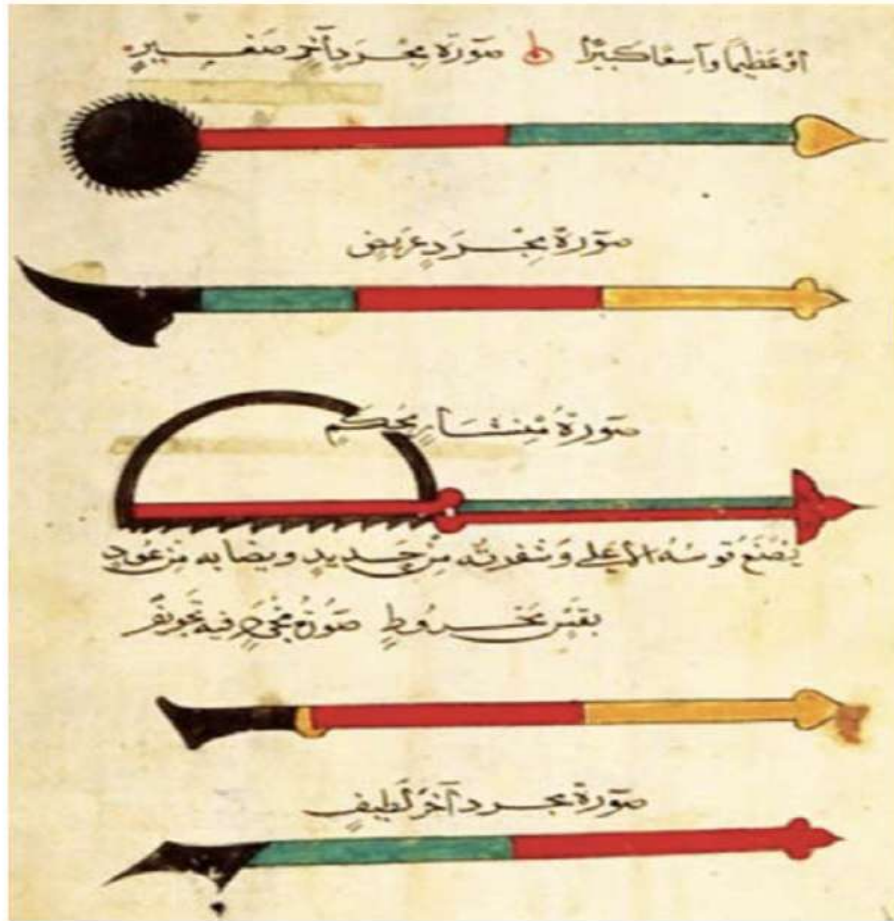 أو عظيمًا واسعًا كبيرًا صورة مجرد آخر صغير
صورة مجرد عريض
صورة منشار محكم
يصنع قوسه الأعلى وشفرته من حديد ونصابه من عود
بقس مخروط صورة مجرد فيه تجويف
صورة مجرد آخر لطيف